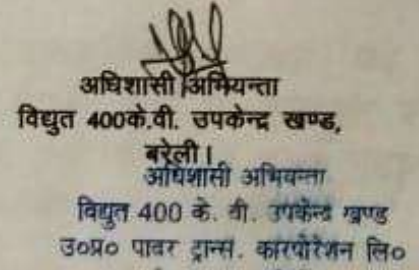 अधिशासी अभियन्ता
विद्युत 400के.वी. उपकेन्द्र खण्ड,
बरेली।
अधिशासी अभियन्ता
विद्युत 400 के. वी. उपकेन्द्र खण्ड
उ०प्र० पावर ट्रान्स. कारपोरेशन लि०